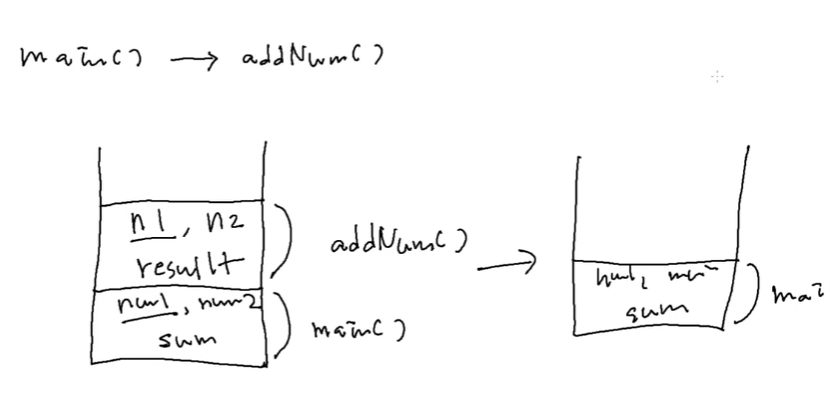 main() → addNum()
n1, n2
result
addNum() →
num1, num2
sum
main()
num1,
sum
mai